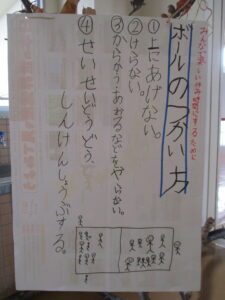 みんなで楽しい休み時間にするために
ボールのつかい方
①上にあげない。
②けらない。
③からかう、あおるなどをやらない。
④せいせいどうどう、
しんけんしょうぶする。